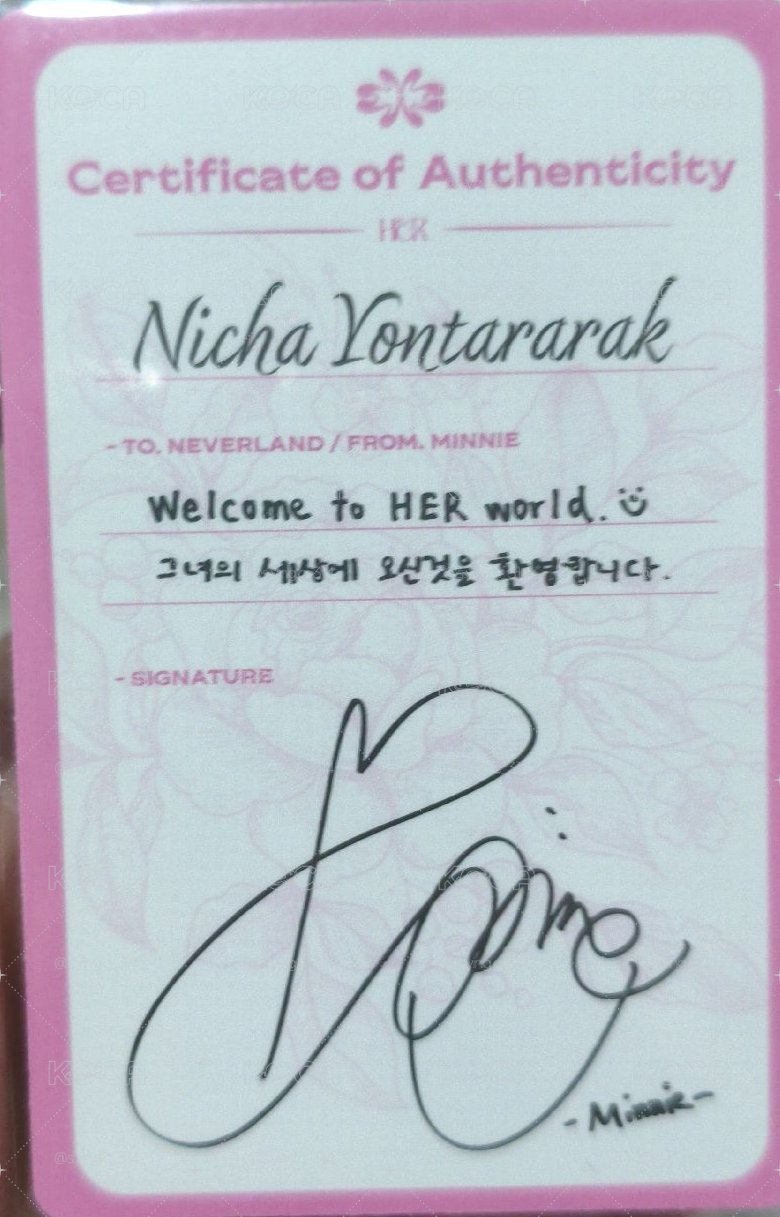 Certificate of Authenticity
HER
Nicha Yontararak
- TO. NEVERLAND / FROM. MINNIE
Welcome to HER world.
그녀의 세상에 오신것을 환영합니다.
- SIGNATURE
- Minnie -
KOCA